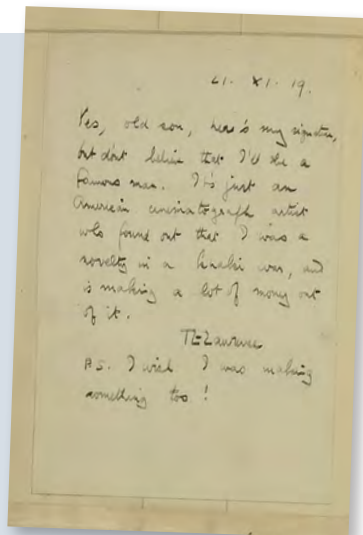 21. XI. 19.
Yes, old son, here's my signature,
but don't believe that I'll be a
famous man. It's just an
American cinematograph artist
who found out that I was a
novelty in a khaki war, and
is making a lot of money out
of it.
TELawrence
P.S. I wish I was making
something too!